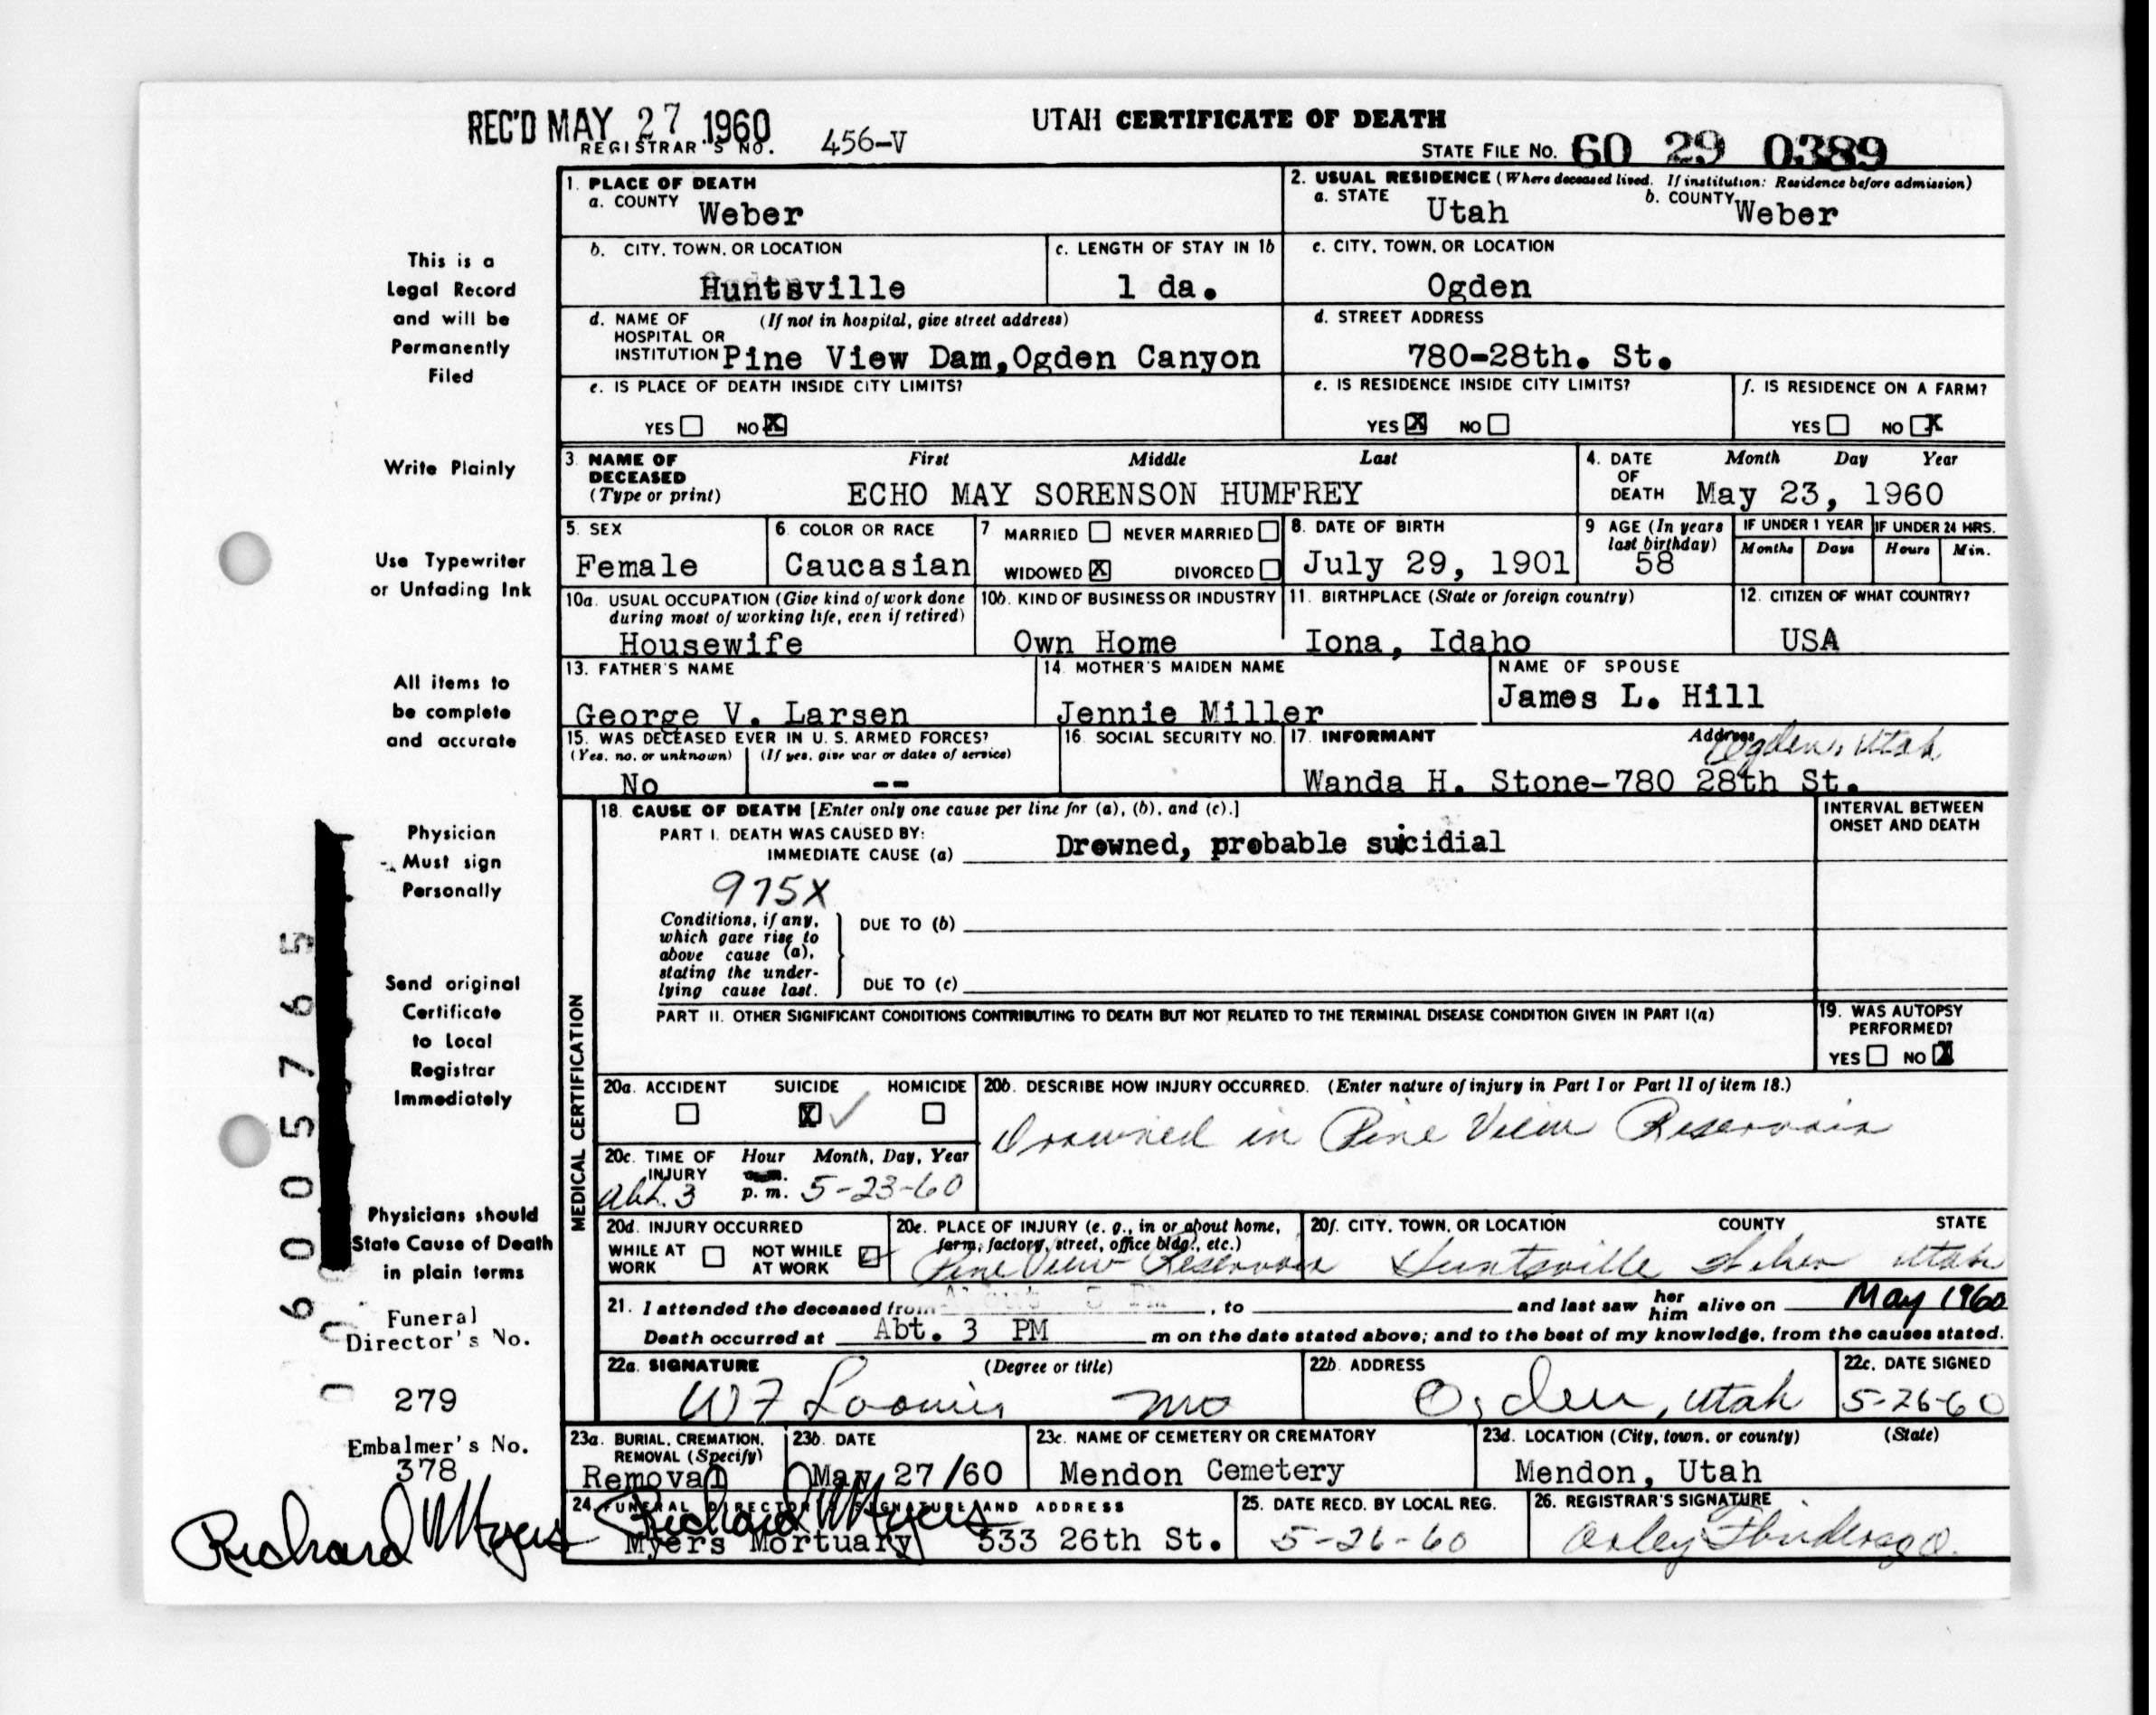 REC'D MAY 27 1960
UTAH CERTIFICATE OF DEATH
REGISTRAR'S NO. 456-V
STATE FILE NO. 60 29 0389
1. PLACE OF DEATH
a. COUNTY Weber
2. USUAL RESIDENCE (Where deceased lived. If institution: Residence before admission)
a. STATE Utah b. COUNTY Weber
b. CITY, TOWN, OR LOCATION
Huntsville
c. LENGTH OF STAY IN 1b
1 da.
c. CITY, TOWN, OR LOCATION
Ogden
d. NAME OF HOSPITAL OR INSTITUTION (If not in hospital, give street address)
Pine View Dam, Ogden Canyon
d. STREET ADDRESS
780-28th. St.
e. IS PLACE OF DEATH INSIDE CITY LIMITS?
YES NO X
e. IS RESIDENCE INSIDE CITY LIMITS?
YES X NO
f. IS RESIDENCE ON A FARM?
YES NO X
3. NAME OF DECEASED (Type or print)
First Middle Last
ECHO MAY SORENSON HUMFREY
4. DATE OF DEATH
Month Day Year
May 23, 1960
5. SEX
Female
6. COLOR OR RACE
Caucasian
7 MARRIED NEVER MARRIED
WIDOWED X DIVORCED
8. DATE OF BIRTH
July 29, 1901
9 AGE (In years last birthday)
58
IF UNDER 1 YEAR
Months Days
IF UNDER 24 HRS.
Hours Min.
10a. USUAL OCCUPATION (Give kind of work done during most of working life, even if retired)
Housewife
10b. KIND OF BUSINESS OR INDUSTRY
Own Home
11. BIRTHPLACE (State or foreign country)
Iona, Idaho
12. CITIZEN OF WHAT COUNTRY?
USA
13. FATHER'S NAME
George V. Larsen
14. MOTHER'S MAIDEN NAME
Jennie Miller
NAME OF SPOUSE
James L. Hill
15. WAS DECEASED EVER IN U. S. ARMED FORCES?
(Yes, no, or unknown) (If yes, give war or dates of service)
No --
16. SOCIAL SECURITY NO.
17. INFORMANT Address
Ogden, Utah
Wanda H. Stone-780 28th St.
18. CAUSE OF DEATH [Enter only one cause per line for (a), (b), and (c).]
PART I. DEATH WAS CAUSED BY:
IMMEDIATE CAUSE (a) Drowned, probable suicidial
INTERVAL BETWEEN ONSET AND DEATH
975X
Conditions, if any, which gave rise to above cause (a), stating the underlying cause last.
DUE TO (b)
DUE TO (c)
PART II. OTHER SIGNIFICANT CONDITIONS CONTRIBUTING TO DEATH BUT NOT RELATED TO THE TERMINAL DISEASE CONDITION GIVEN IN PART I(a)
19. WAS AUTOPSY PERFORMED?
YES NO X
MEDICAL CERTIFICATION
20a. ACCIDENT SUICIDE HOMICIDE
X ✓
20b. DESCRIBE HOW INJURY OCCURRED. (Enter nature of injury in Part I or Part II of item 18.)
Drowned in Pine View Reservoir
20c. TIME OF INJURY
Hour Month, Day, Year
Abt. 3 p. m. 5-23-60
20d. INJURY OCCURRED
WHILE AT WORK NOT WHILE AT WORK
20e. PLACE OF INJURY (e. g., in or about home, farm, factory, street, office bldg., etc.)
Pine View Reservoir
20f. CITY, TOWN, OR LOCATION COUNTY STATE
Huntsville Weber Utah
21. I attended the deceased from , to and last saw her him alive on May 1960
Death occurred at Abt. 3 PM m on the date stated above; and to the best of my knowledge, from the causes stated.
22a. SIGNATURE (Degree or title)
W F Loomis MD
22b. ADDRESS
Ogden, Utah
22c. DATE SIGNED
5-26-60
23a. BURIAL, CREMATION, REMOVAL (Specify)
Removal
23b. DATE
May 27/60
23c. NAME OF CEMETERY OR CREMATORY
Mendon Cemetery
23d. LOCATION (City, town, or county) (State)
Mendon, Utah
24. FUNERAL DIRECTOR'S SIGNATURE AND ADDRESS
Richard W Myers
Myers Mortuary 533 26th St.
25. DATE RECD. BY LOCAL REG.
5-26-60
26. REGISTRAR'S SIGNATURE
This is a
Legal Record
and will be
Permanently
Filed
Write Plainly
Use Typewriter
or Unfading Ink
All items to
be complete
and accurate
Physician
Must sign
Personally
Send original
Certificate
to Local
Registrar
Immediately
Physicians should
State Cause of Death
in plain terms
Funeral
Director's No.
279
Embalmer's No.
378
Richard W Myers
6005765